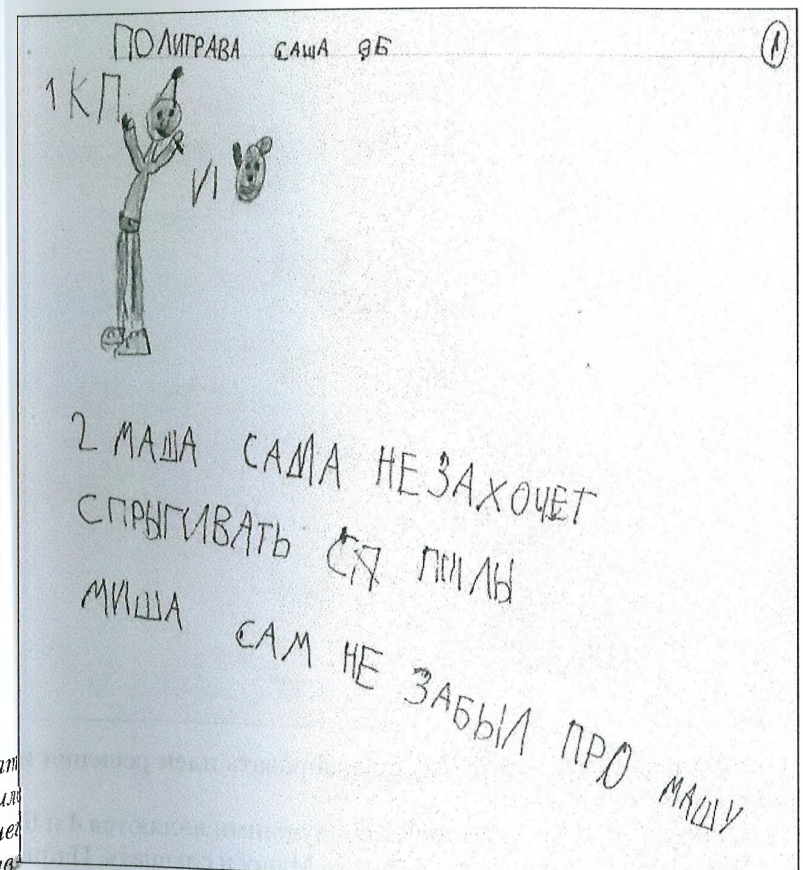 ПОЛИГРАВА САША ЯБ
1
1 КП
И
2 МАША САМА НЕЗАХОЧЕТ
СПРЫГИВАТЬ СЯ ПИЛЫ
МИША САМ НЕ ЗАБЫЛ ПРО МАШУ